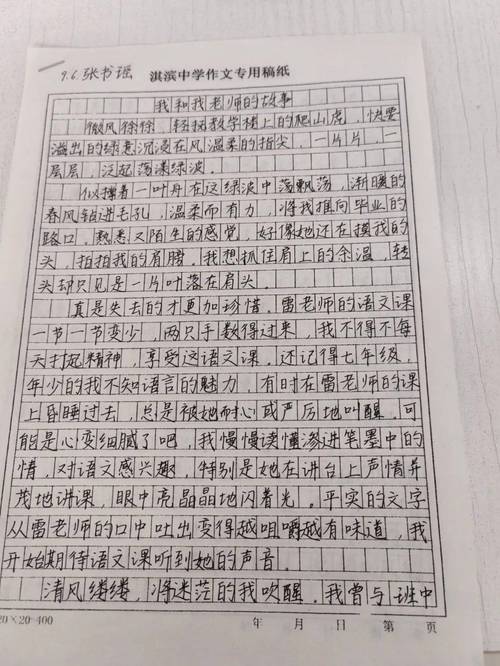 9.6 张书谣 淇滨中学作文专用稿纸
我和我老师的故事
微风徐徐，轻抚教学楼上的爬山虎，快要
溢出的绿意沉浸在风温柔的指尖，一片片，一
层层，泛起荡漾绿波。
似撑着一叶舟在这绿波中荡飘荡，渐暖的
春风钻进毛孔，温柔而有力，将我推向毕业的
路口。熟悉又陌生的感觉，好像她还在摸我的
头，拍拍我的肩膀。我想抓住肩上的余温，转
头却只见是一片叶落在肩头。
真是失去的才更加珍惜。雷老师的语文课
一节一节变少，两只手数得过来，我不得不每
天打起精神，享受这语文课，还记得七年级，
年少的我不知语言的魅力，有时在雷老师的课
上昏睡过去，总是被她耐心或严厉地叫醒，可
能是心变细腻了吧，我慢慢读懂渗进笔墨中的
情，对语文感兴趣，特别是她在讲台上声情并
茂地讲课，眼中亮晶晶地闪着光。平实的文字
从雷老师的口中吐出变得越咀嚼越有味道，我
开始期待语文课听到她的声音。
清风缕缕，将迷茫的我吹醒。我曾与班中
20×20=400 年 月 日 第 页